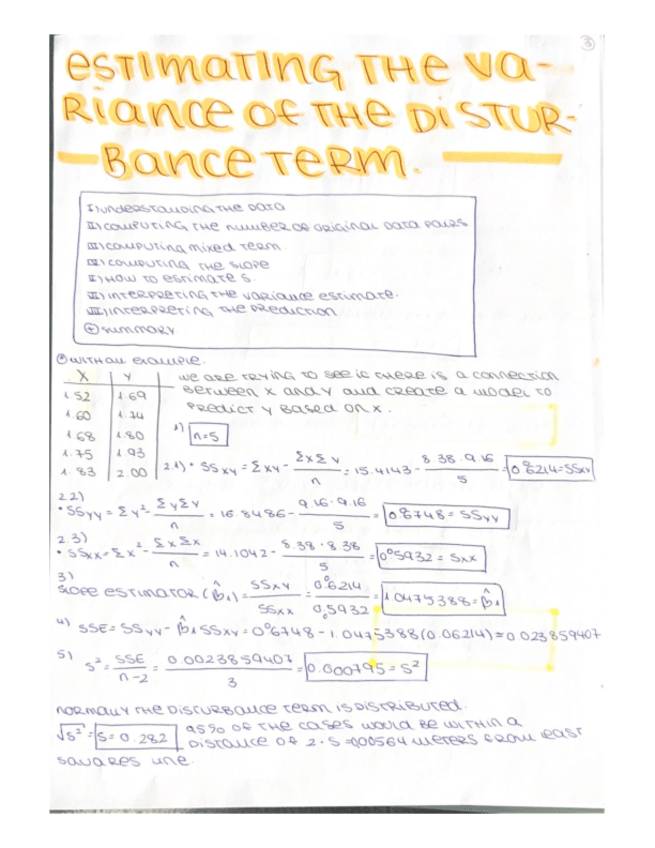 3
ESTIMATING THE VA-
RIANCE OF THE DISTUR-
BANCE TERM.
I) UNDERSTANDING THE DATA
II) COMPUTING THE NUMBER OF ORIGINAL DATA PAIRS
III) COMPUTING MIXED TERM.
IV) COMPUTING THE SLOPE
V) HOW TO ESTIMATE S.
VI) INTERPRETING THE VARIANCE ESTIMATE.
VII) INTERPRETING THE PREDICTION
SUMMARY
WITH AN EXAMPLE.
X Y
1.52 1.69
1.60 1.74
1.68 1.80
1.75 1.93
1.83 2.00
WE ARE TRYING TO SEE IF THERE IS A CONNECTION
BETWEEN X AND Y AND CREATE A MODEL TO
PREDICT Y BASED ON X.
1) n=5
2.1) • SSxy = Σxy - ΣxΣy/n = 15.4143 - 8.38·9.16/5 = 0.6214 = SSxy
2.2)
• SSyy = Σy² - ΣyΣy/n = 16.8486 - 9.16·9.16/5 = 0.6748 = SSyy
2.3)
• SSxx = Σx² - ΣxΣx/n = 14.1042 - 8.38·8.38/5 = 0.5932 = Sxx
3)
SLOPE ESTIMATOR (β̂1) = SSxy/SSxx = 0.6214/0.5932 = 1.0475388 = β̂1
4) SSE = SSyy - β̂1 SSxy = 0.6748 - 1.0475388(0.06214) = 0.023859407
5) S² = SSE/n-2 = 0.0023859407/3 = 0.000795 = S²
NORMALLY THE DISTURBANCE TERM IS DISTRIBUTED.
√S² = S = 0.282 95% OF THE CASES WOULD BE WITHIN A
DISTANCE OF 2·S = 0.0564 METERS FROM LEAST
SQUARES LINE.